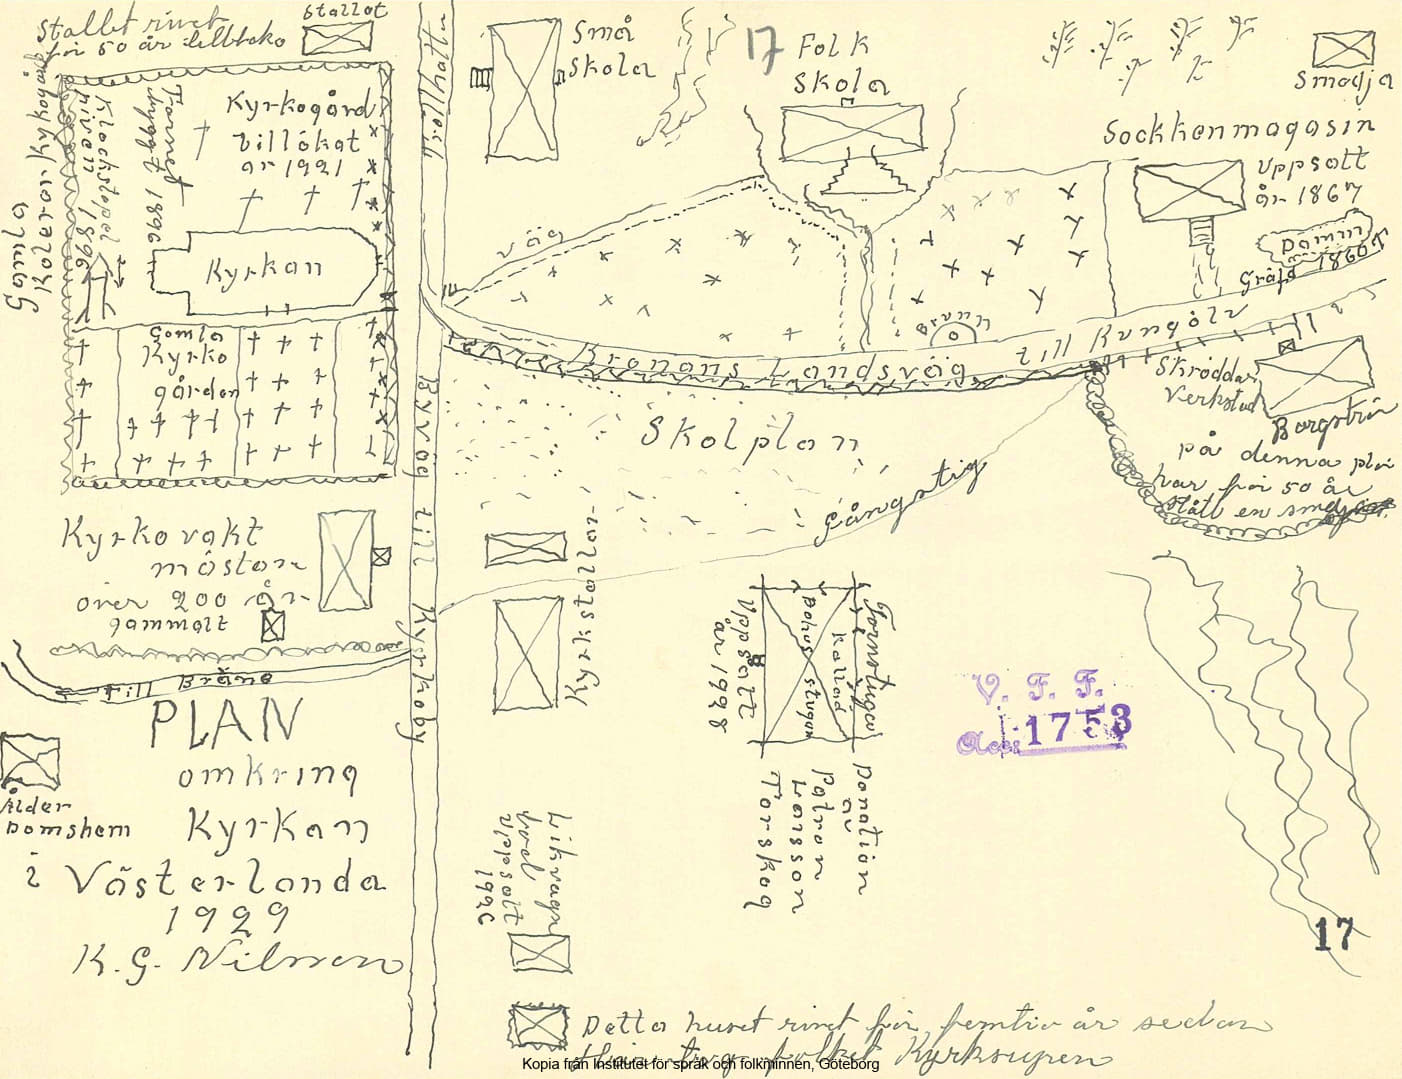 Stallet rivet
för 50 år tillbaka
Stallet
Små
Skola
17
Folk
Skola
Smedja
Sockkenmagasin
Uppsatt
år 1867
Damm
Gräfd 1860
Gamla
Kolerakykogård
Klockstapel
riven 1896
Tornet
byggt 1896
Kyrkogård
Tillökat
år 1921
Kyrkan
Gamla
Kyrko
gården
väg
Brunn
Kronans Landsväg till Kungälv
Skräddar
Verkstad
Bergström
på denna plats
har för 50 år
stått en smedja
Skolplan
Gångstig
Byväg till Kyrkeby
Kyrkovakt
mästare
över 200 år
gammalt
Kyrkstallar
till Bräne
PLAN
omkring
Kyrkan
i Västerlanda
1929
K. G. Nilsson
Ålder
Domshem
Fornstugan
Kallad
Bohusstugan
Uppsatt
år 1928
Donation
av
Patron
Larsson
Torskog
V. F. F.
Acc: 1753
Likvagn
bod
Uppsatt
1926
17
Detta huset rivet för femtio år sedan
Här tog folket Kyrksupen
Kopia från Institutet för språk och folkminnen, Göteborg